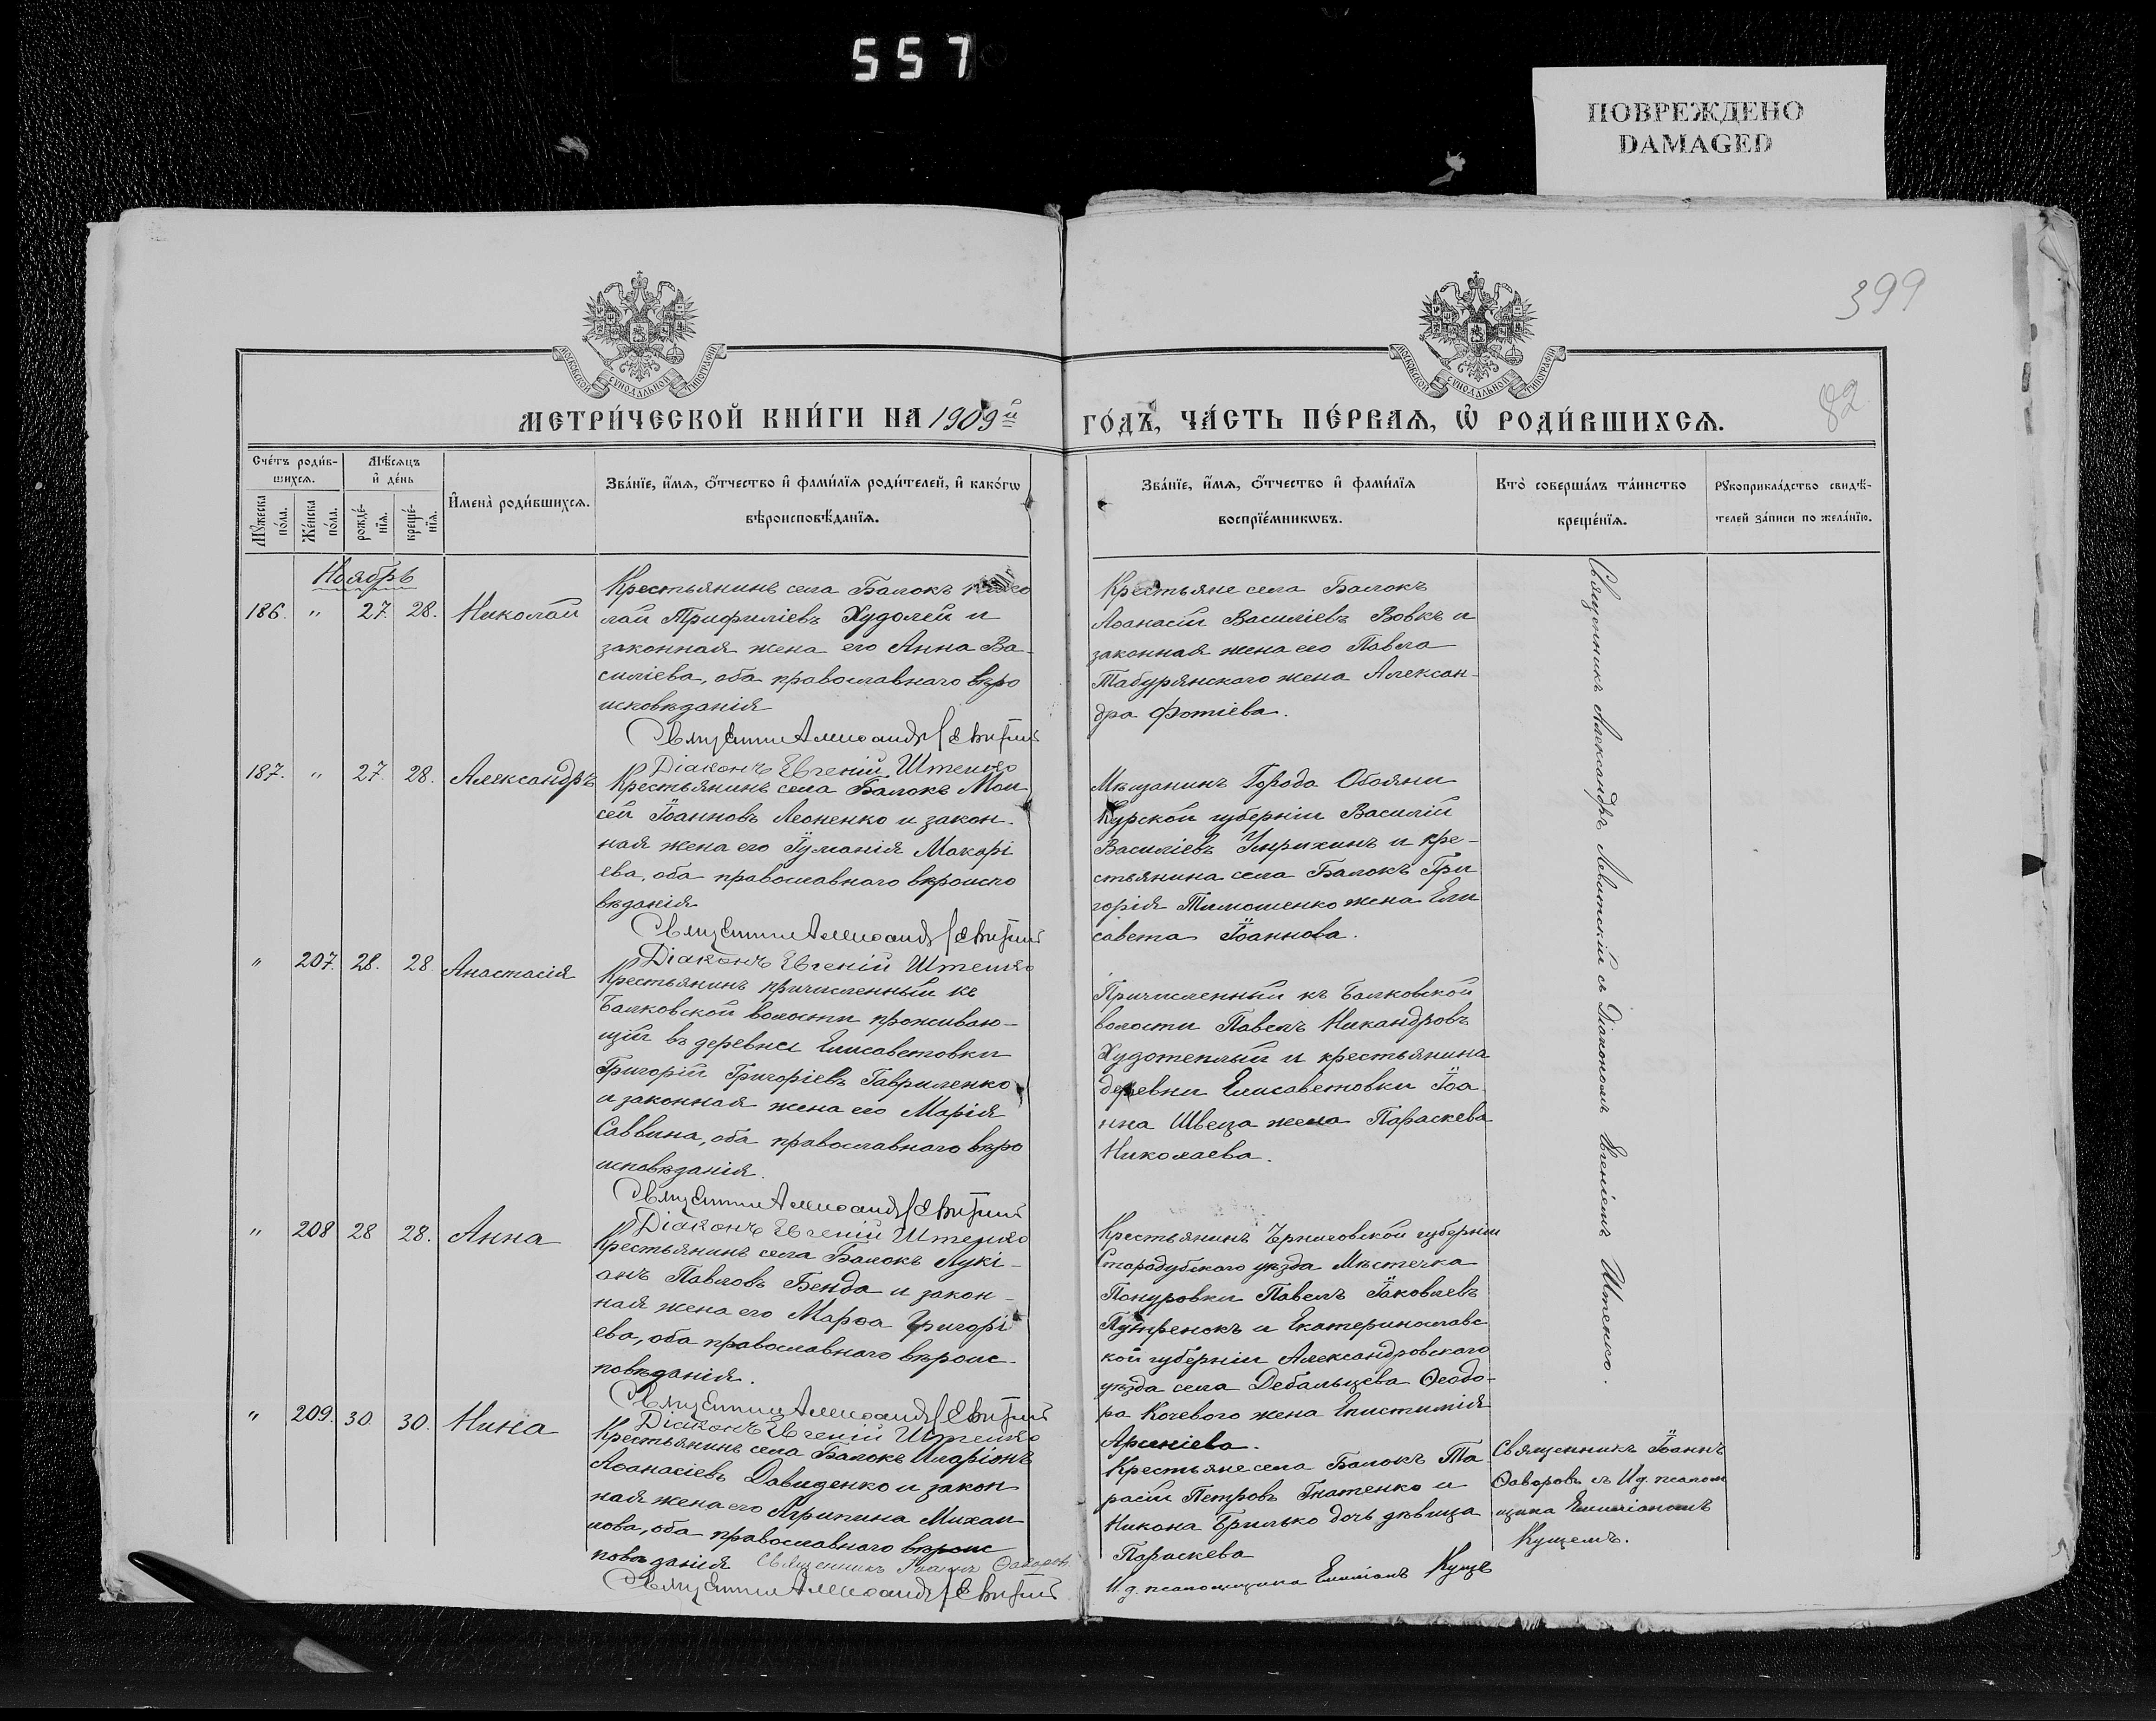 557
ПОВРЕЖДЕНО
DAMAGED
399
82
МОСКОВСКОЙ СѴНОДАЛЬНОЙ ТИПОГРАФІИ
МОСКОВСКОЙ СѴНОДАЛЬНОЙ ТИПОГРАФІИ
МЕТРИ́ЧЕСКОЙ КНИ́ГИ НА 1909й
ГО́ДЪ, ЧА́СТЬ ПЕ́РВАѦ, Ѡ҆ РОДИ́ВШИХСѦ.
Сче́тъ роди́в-
шихсѧ.
Мѣ́сѧцъ
и҆ де́нь
Мꙋ́жеска по́ла.
Же́нска по́ла.
рожде́-
нїѧ.
креще́-
нїѧ.
И҆мена̀ роди́вшихсѧ.
Зва́нїе, и҆́мѧ, ѻ҆́тчество и҆ фами́лїѧ роди́телей, и҆ како́гѡ
вѣроисповѣ́данїѧ.
Зва́нїе, и҆́мѧ, ѻ҆́тчество и҆ фами́лїѧ
воспрїе́мникѡвъ.
Кто̀ соверша́лъ та́инство
креще́нїѧ.
Рꙋкоприкла́дство свидѣ́-
телей за́писи по жела́нїю.
Ноябрь
186. " 27. 28. Николай
Крестьянинъ села Балокъ Нико
лай Трифиліевъ Худолей и
законная жена его Анна Ва-
силіева, оба православнаго вѣро
исповѣданія
Священникъ Александръ Левитскій
Діаконъ Евгеній Штенко
Крестьяне села Балокъ
Аѳанасій Василіевъ Вовкъ и
законная жена его Павла
Табурянскаго жена Алексан-
дра Фотіева.
187. " 27. 28. Александръ
Крестьянинъ села Балокъ Мои
сей Іоанновъ Леоненко и закон-
ная жена его Іуманія Макарі
ева, оба православнаго вѣроиспо
вѣданія
Священникъ Александръ Левитскій
Діаконъ Евгеній Штенко
Мѣщанинъ Города Обояни
Курской губерніи Василій
Василіевъ и кре-
стьянина села Балокъ Гри
горія Тимошенко жена Ели
савета Іоаннова.
" 207. 28. 28. Анастасія
Крестьянинъ причисленный къ
Балковской волости проживаю-
щій въ деревнѣ Елисаветовки
Григорій Григоріевъ Гавриленко
и законная жена его Марія
Саввина, оба православнаго вѣро
исповѣданія.
Священникъ Александръ Левитскій
Діаконъ Евгеній Штенко
Причисленный къ Балковской
волости Павелъ Никандровъ
Худотеплый и крестьянина
деревни Елисаветовки Іоа-
нна Швеца жена Параскева
Николаева.
" 208 28 28. Анна
Крестьянинъ села Балокъ Лукі-
анъ Павловъ Бенда и закон-
ная жена его Марѳа Григорі
ева, оба православнаго вѣроис-
повѣданія.
Священникъ Александръ Левитскій
Діаконъ Евгеній Штенко
Крестьянинъ Черниговской губерніи
Стародубскаго уѣзда Мѣстечка
Понуровки Павелъ Іаковлевъ
и Екатеринославс
кой губерніи Александровскаго
уѣзда села Дебальцева Ѳеодо-
ра Кочевого жена Епистимія
Арсеніева.
Священникъ Александръ Левитскій съ Діакономъ Евгеніемъ Штенко.
" 209. 30. 30. Нина
Крестьянинъ села Балокъ Иларіонъ
Аѳанасіевъ Давиденко и закон
ная жена его Агрипина Михаи
лова, оба православнаго вѣроис
повѣданія Священникъ Іоаннъ Ѳаворовъ
Священникъ Александръ Левитскій
Крестьяне села Балокъ Та
расій Петровъ Гнатенко и
Никона Брилько дочь дѣвица
Параскева
И. д. псаломщика Емиліанъ Кущъ
Священникъ Іоаннъ
Ѳаворовъ съ И д. псалом
щика Емиліаномъ
Кущемъ.